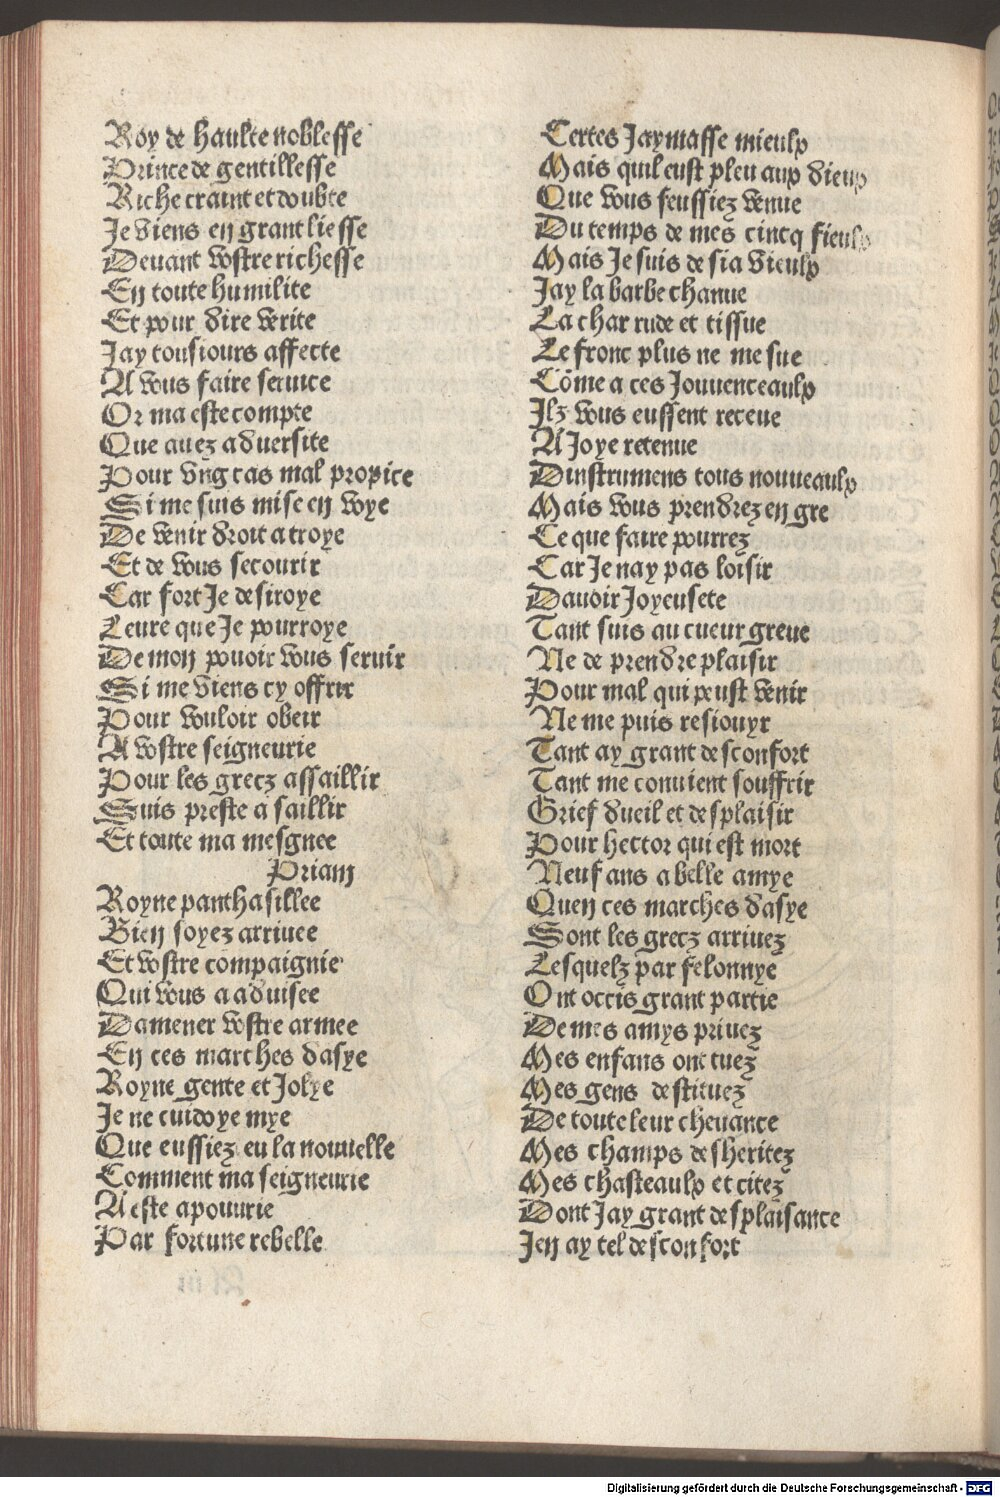 Roy de haulte noblesse
Prince de gentillesse
Riche craint et doubte
Je viens en grant liesse
Devant vostre richesse
En toute humilite
Et pour dire verite
Jay tousiours affecte
A vous faire service
Or ma este compte
Que avez adversite
Pour ung cas mal propice
Si me suis mise en voye
De venir droit a troye
Et de vous secourir
Car fort Je desiroye
Leure que Je pourroye
De mon povoir vous servir
Si me viens cy offrir
Pour vouloir obeir
A vostre seigneurie
Pour les grecz assaillir
Suis preste a saillir
Et toute ma mesgnee
Priam
Royne panthasillee
Bien soyez arrivee
Et vostre compaignie
Qui vous a advisee
Damener vostre armee
En ces marches dasye
Royne gente et Jolye
Je ne cuidoye mye
Que eussiez eu la nouvelle
Comment ma seigneurie
A este apouurie
Par fortune rebelle
Certes Jaymasse mieulx
Mais quil eust pleu aux dieux
Que vous feussiez venue
Du temps de mes cincq fieulx
Mais Je suis de sia vieulx
Jay la barbe chanue
La char rude et tissue
Le front plus ne me sue
Cõme a ces Jouuenceaulx
Ilz vous eussent receue
A Joye retenue
Dinstrumens tous nouueaulx
Mais vous prendrez en gre
Ce que faire pourrez
Car Je nay pas loisir
Dauoir Joyeusete
Tant suis au cueur greue
Ne de prendre plaisir
Pour mal qui peust venir
Ne me puis resiouyr
Tant ay grant desconfort
Tant me conuient souffrir
Grief dueil et desplaisir
Pour hector qui est mort
Neuf ans a belle amye
Quen ces marches dasye
Sont les grecz arriuez
Lesquelz par felonnye
Ont occis grant partie
De mes amys priuez
Mes enfans ont tuez
Mes gens destituez
De toute leur cheuance
Mes champs desheritez
Mes chasteaulx et citez
Dont Jay grant desplaisance
Jen ay tel desconfort
Digitalisierung gefördert durch die Deutsche Forschungsgemeinschaft - DFG